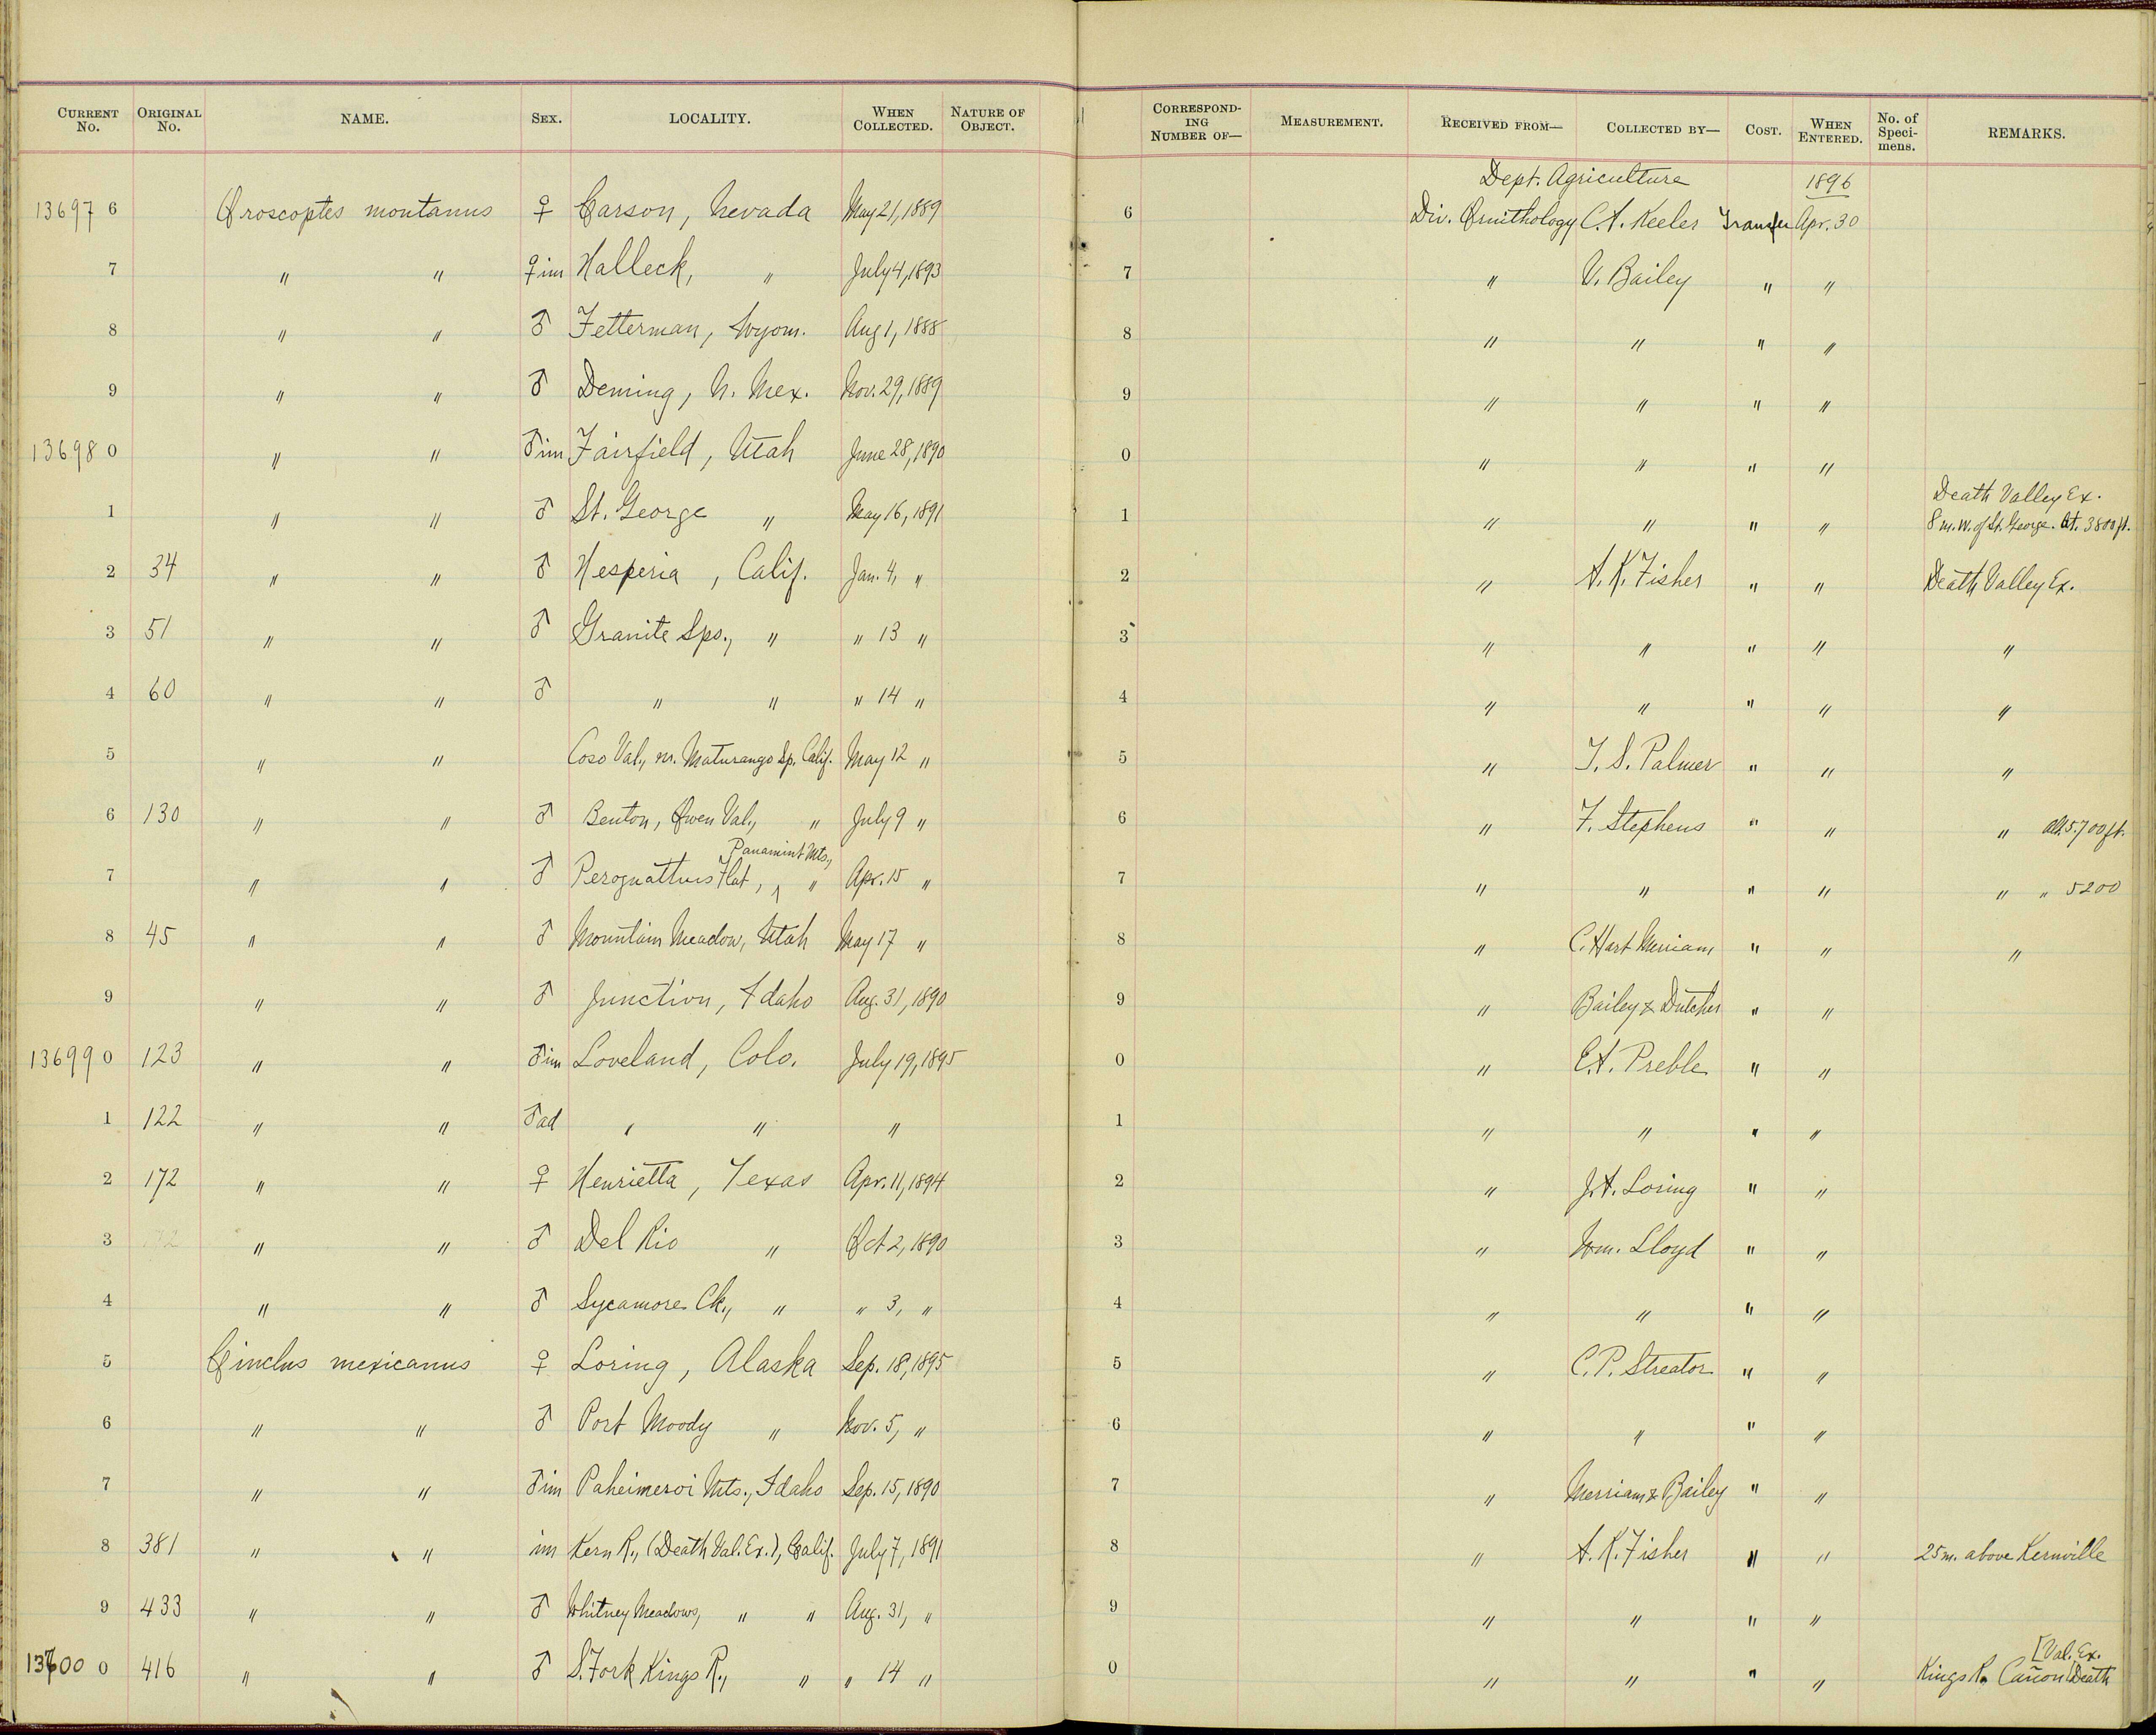 CURRENT No. ORIGINAL No. NAME. SEX. LOCALITY. WHEN COLLECTED. NATURE OF OBJECT. CORRESPONDING NUMBER OF— MEASUREMENT. RECEIVED FROM— COLLECTED BY— COST. WHEN ENTERED. No. of Specimens. REMARKS.
Dept. Agriculture 1896
13697 6 Oroscoptes montanus ♀ Carson, Nevada May 21, 1889 6 Div. Ornithology C. A. Keeler Transfer Apr. 30
7 " " ♀ im Halleck, " July 4, 1893 7 " V. Bailey " "
8 " " ♂ Fetterman, Wyom. Aug 1, 1888 8 " " " "
9 " " ♂ Deming, N. Mex. Nov. 29, 1889 9 " " " "
13698 0 " " ♂ im Fairfield, Utah June 28, 1890 0 " " " "
Death Valley Ex.
1 " " ♂ St. George " May 16, 1891 1 " " " " 8 m. W. of St. George. Alt. 3800 ft.
2 34 " " ♂ Hesperia, Calif. Jan. 4, " 2 " A. K. Fisher " " Death Valley Ex.
3 51 " " ♂ Granite Sps., " " 13 " 3 " " " " "
4 60 " " ♂ " " " 14 " 4 " " " " "
5 " " Coso Val., nr. Maturango Sp. Calif. May 12 " 5 " T. S. Palmer " " "
6 130 " " ♂ Benton, Owen Val., " July 9 " 6 " F. Stephens " " " alt. 5700 ft.
Panamint Mts.,
7 " " ♂ Perognathus Flat, ^ " Apr. 15 " 7 " " " " " " 5200
8 45 " " ♂ Mountain Meadow, Utah May 17 " 8 " C. Hart Merriam " " "
9 " " ♂ Junction, Idaho Aug. 31, 1890 9 " Bailey & Dutcher " "
13699 0 123 " " ♂ im Loveland, Colo. July 19, 1895 0 " E. A. Preble " "
1 122 " " ♂ ad " " " 1 " " " "
2 172 " " ♀ Henrietta, Texas Apr. 11, 1894 2 " J. A. Loring " "
3 " " ♂ Del Rio " Oct 2, 1890 3 " Wm. Lloyd " "
4 " " ♂ Sycamore Ck., " " 3, " 4 " " " "
5 Cinclus mexicanus ♀ Loring, Alaska Sep. 18, 1895 5 " C. P. Streator " "
6 " " ♂ Port Moody " Nov. 5, " 6 " " " "
7 " " ♂ im Paheimeroi Mts., Idaho Sep. 15, 1890 7 " Merriam & Bailey " "
8 381 " " im Kern R., (Death Val. Ex.), Calif. July 7, 1891 8 " A. K. Fisher " " 25 m. above Kernville
9 433 " " ♂ Whitney Meadows, " " Aug. 31, " 9 " " " "
[Val. Ex.
13700 0 416 " " ♂ S. Fork Kings R., " " 14 " 0 " " " " Kings R. Cañon (Death